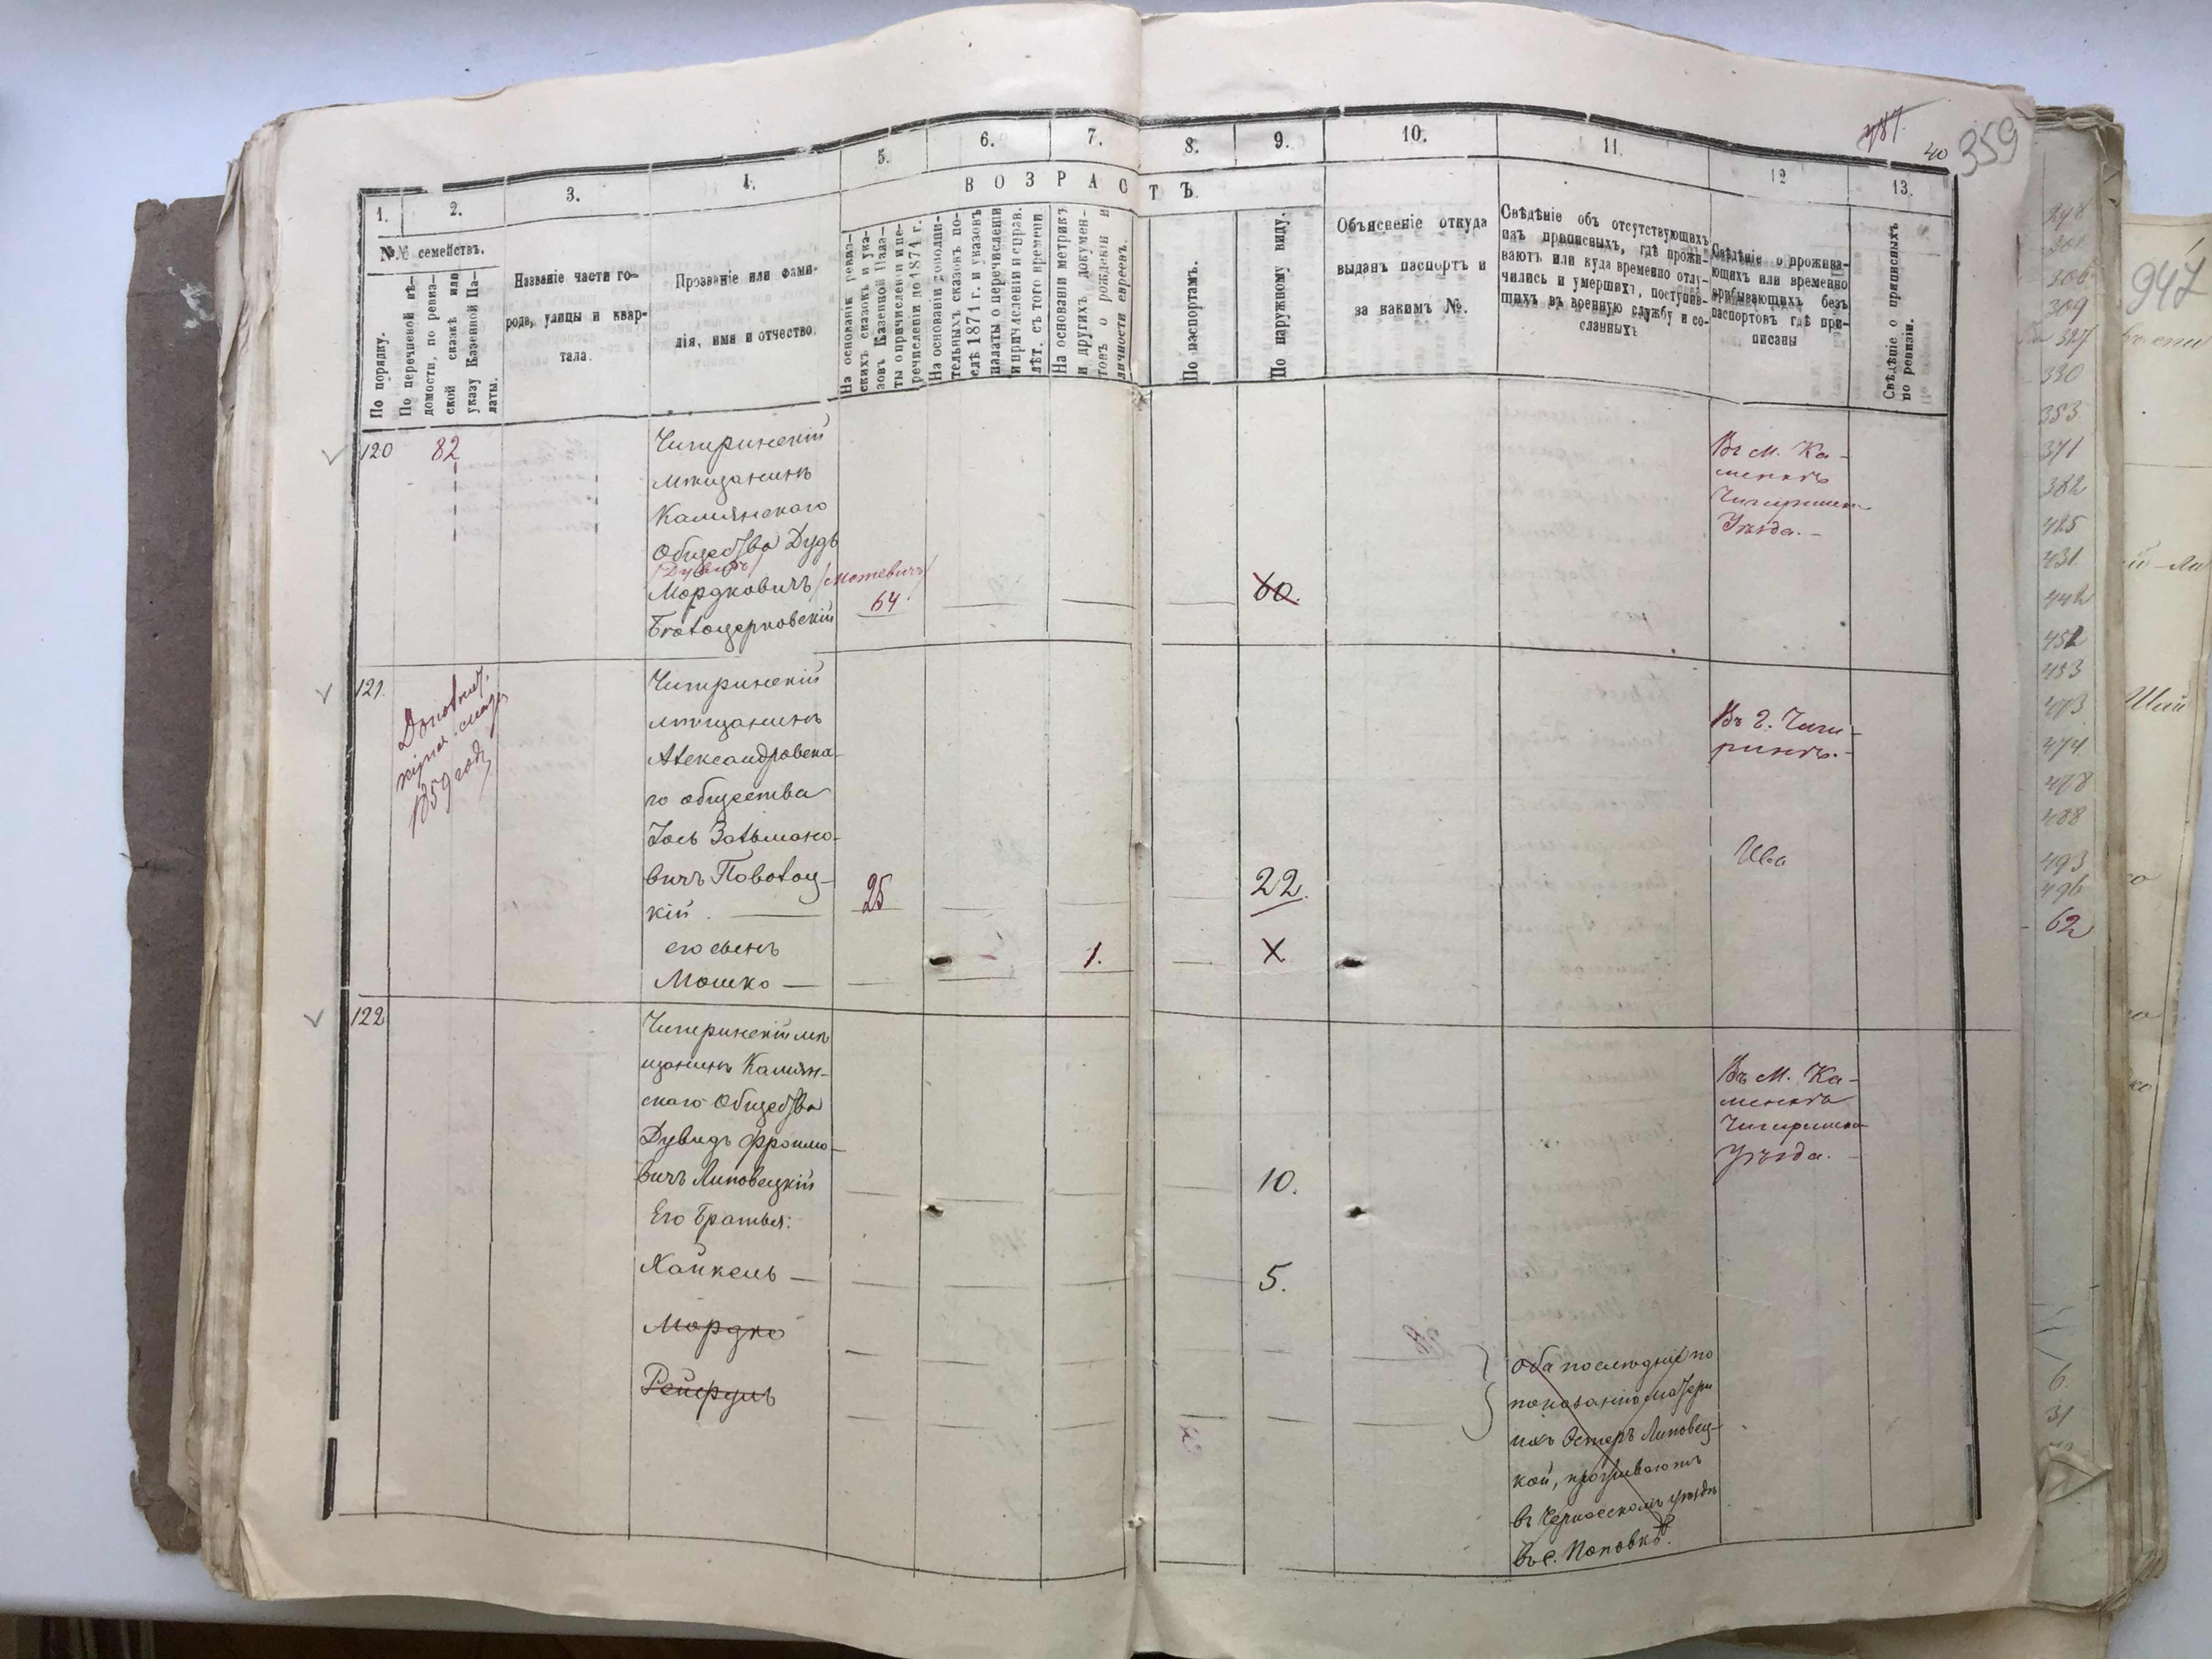 487.
40
359
1.
2.
3.
4.
5.
6.
7.
8.
9.
10.
11.
12
13.
ВОЗРАСТЪ.
№№ семействъ.
По порядку.
По перечневой вѣ-
домости, по ревиз-
ской сказкѣ или
указу Казенной Па-
латы.
Названіе части го-
рода, улицы и квар-
тала.
Прозваніе или фами-
лія, имя и отчество.
На основаніи ревиз-
скихъ сказокъ и ука-
зовъ Казенной Пала-
ты о причисленіи и пе-
речисленіи до 1871 г.
На основаніи дополни-
тельныхъ сказокъ по-
слѣ 1871 г. и указовъ
палаты о перечисленіи
и причисленіи и справ.
лѣт. съ того времени
На основаніи метрикъ
и другихъ докумен-
товъ о рожденіи и
личности евреевъ.
По паспортамъ.
По наружному виду.
Объясненіе откуда
выданъ паспортъ и
за какимъ №.
Свѣдѣніе объ отсутствующихъ
изъ приписныхъ, гдѣ прожи-
ваютъ или куда временно отлу-
чились и умершихъ, поступив-
шихъ въ военную службу и со-
сланныхъ
Свѣдѣніе о прожива-
ющихъ или временно
прибывающихъ безъ
паспортовъ гдѣ при-
писаны
Свѣдѣніе о приписныхъ
по ревизіи.
120
82
Чигиринскій
мѣщанинъ
Камянскаго
Общества Дудь
/Дувидъ/
Мордковичъ /Мотевичъ/
Бѣлоцерковскій
64
60.
Въ м. Ка-
менкѣ
Чигиринск
Уѣзда.-
121.
1859 году
Чигиринскій
мѣщанинъ
Александровска-
го общества
Іось Зельмано-
вичъ Поволоц-
кій.
25
22.
Въ г. Чиги-
ринѣ.-
его сынъ
Мошко
1.
X
122
Чигиринскій мѣ
щанинъ Камян-
скаго Общества
Дувидъ Фроимо-
вичъ Липовецкій
10.
Въ м. Ка-
менкѣ
Чигиринск
Уѣзда.-
Его братья:
Хайкель
5.
Мордко
Рейфулъ
Оба послѣдніе по
показанію матери
ихъ Эстеръ Липовец-
кой, проживаютъ
въ Черкасскомъ уѣздѣ
въ с. Поповкѣ.
306
309
327
330
353
371
382
425
431
442
452
453
473
474
478
488
493
496
62
6
31
947